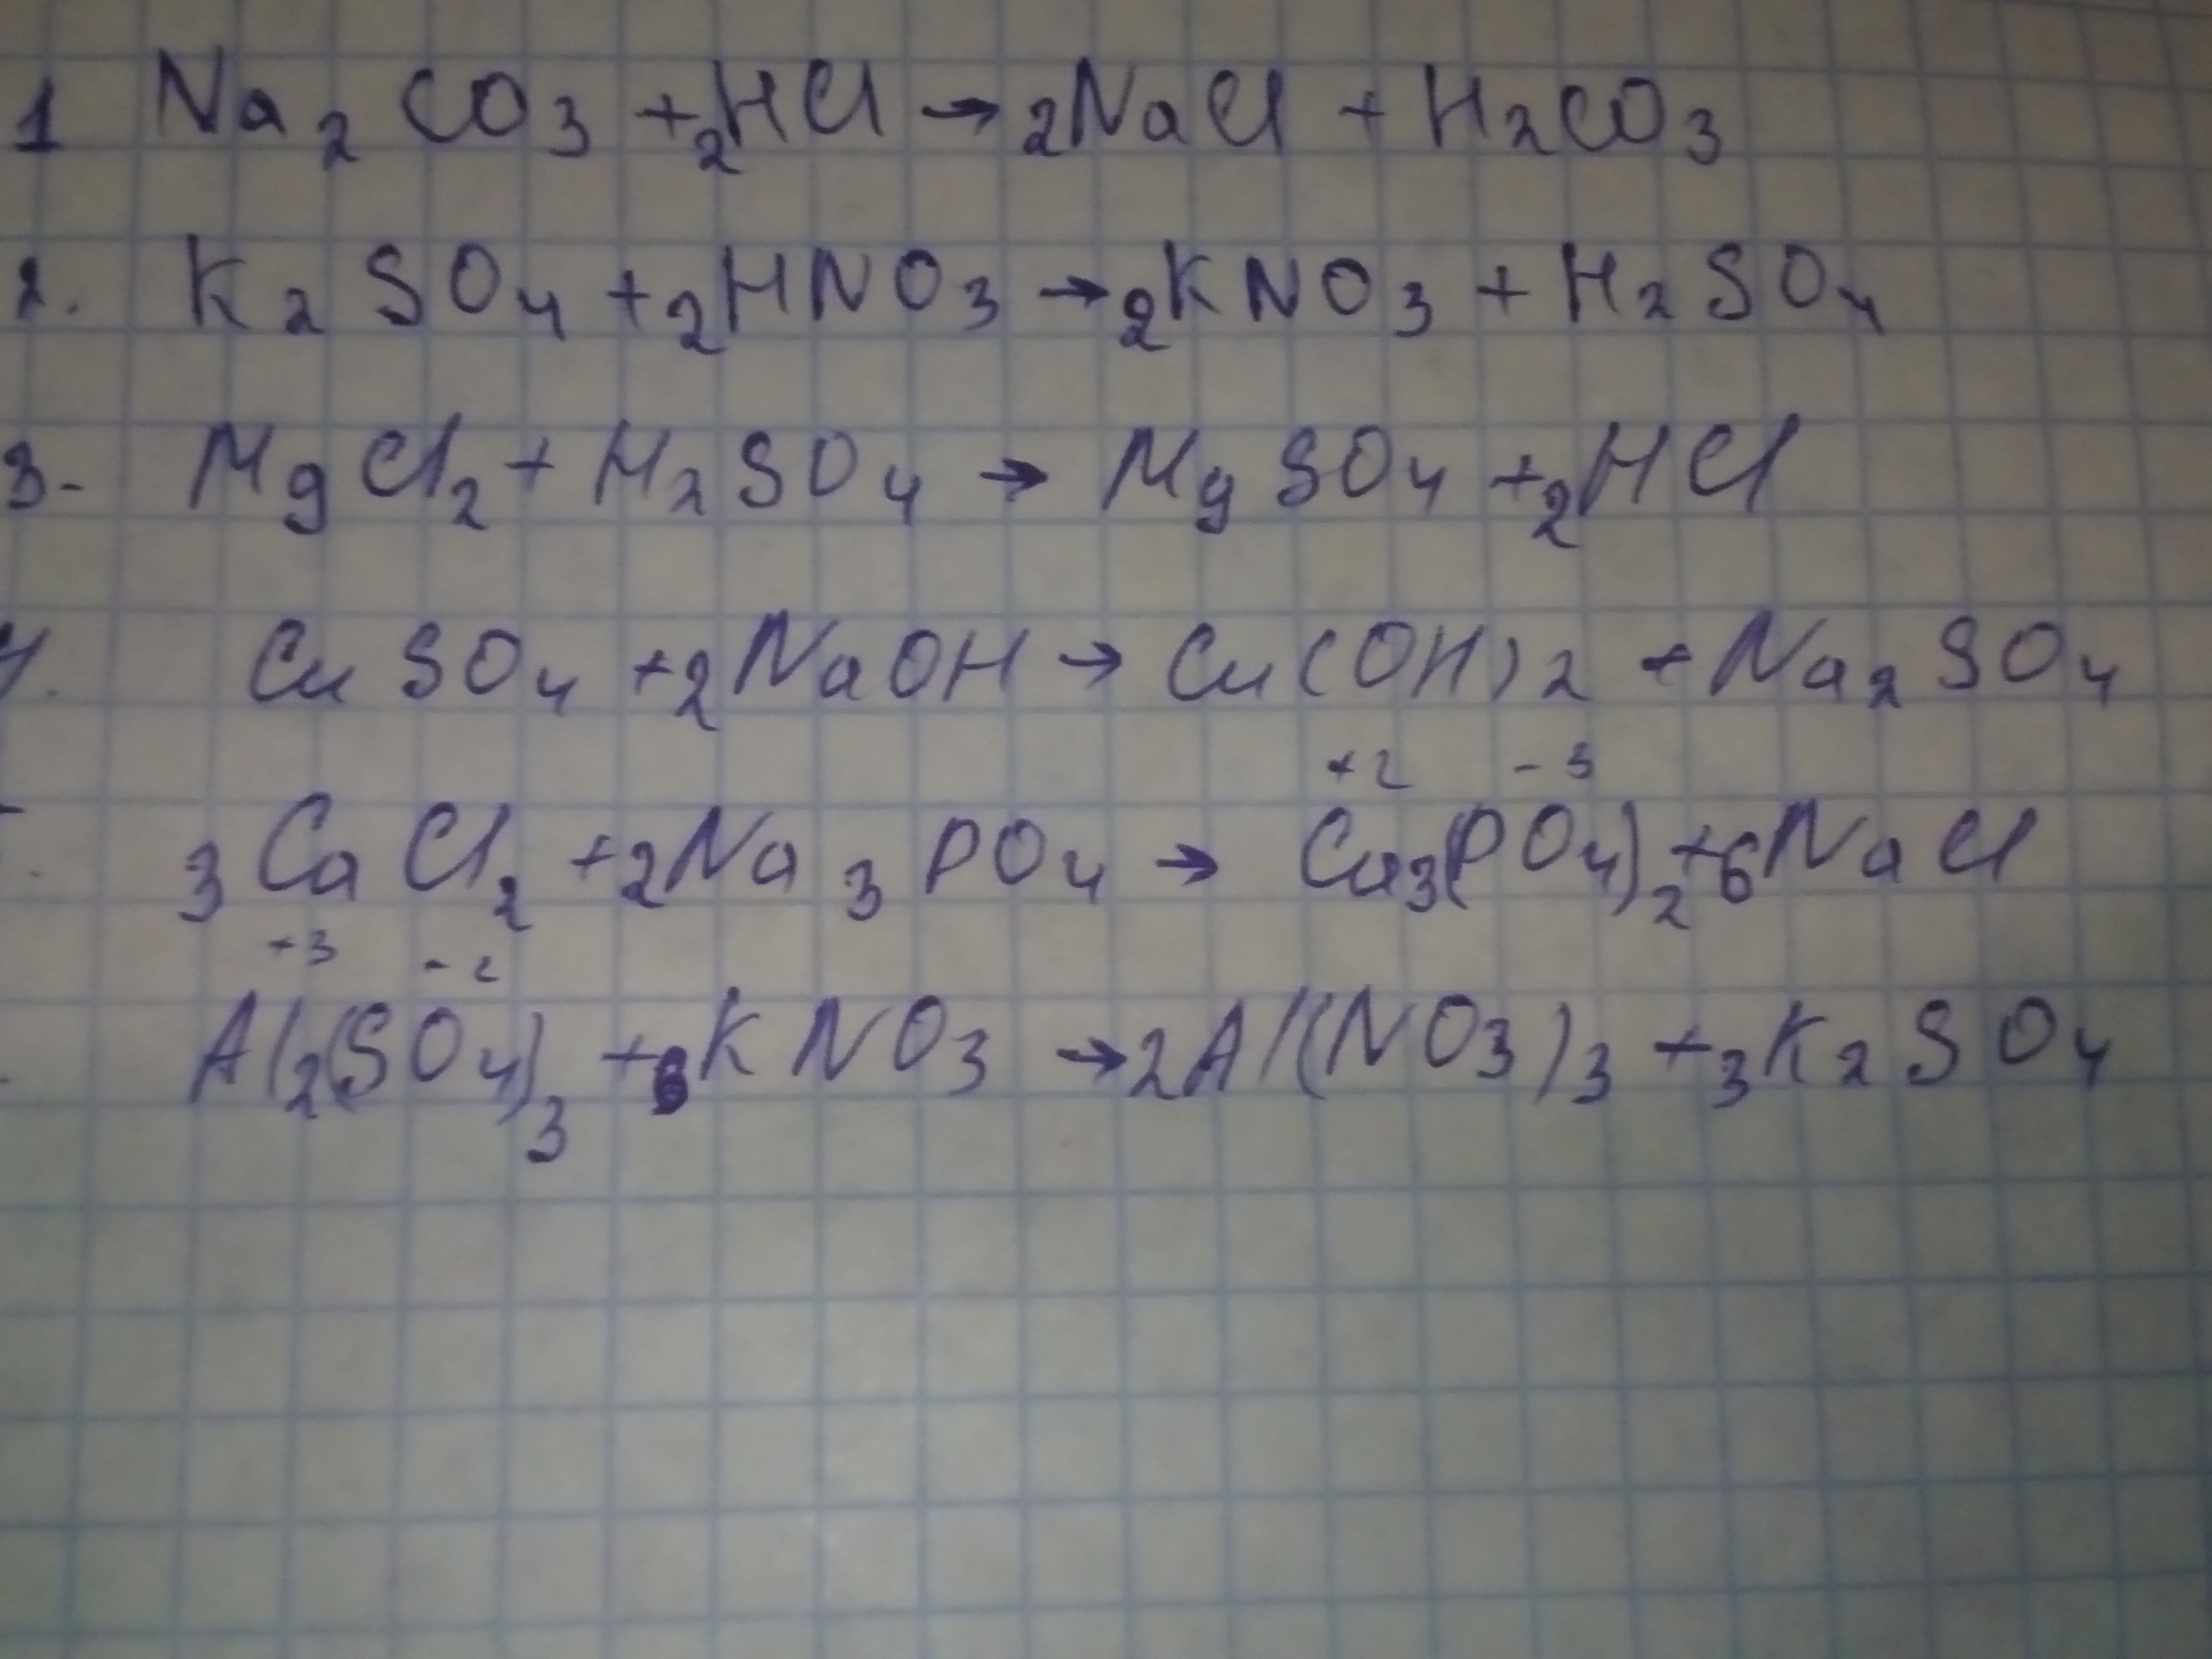 1 Na₂CO₃ + 2HCl → 2NaCl + H₂CO₃
2. K₂SO₄ + 2HNO₃ → 2KNO₃ + H₂SO₄
3. MgCl₂ + H₂SO₄ → MgSO₄ + 2HCl
4. CuSO₄ + 2NaOH → Cu(OH)₂ + Na₂SO₄
+2 -3
3CaCl₂ + 2Na₃PO₄ → Ca₃(PO₄)₂ + 6NaCl
+3 -2
Al₂(SO₄)₃ + 6KNO₃ → 2Al(NO₃)₃ + 3K₂SO₄